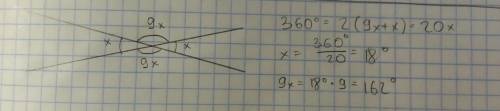 9x
x
x
9x
360° = 2(9x+x) = 20x
x = 360°/20 = 18°
9x = 18° · 9 = 162°